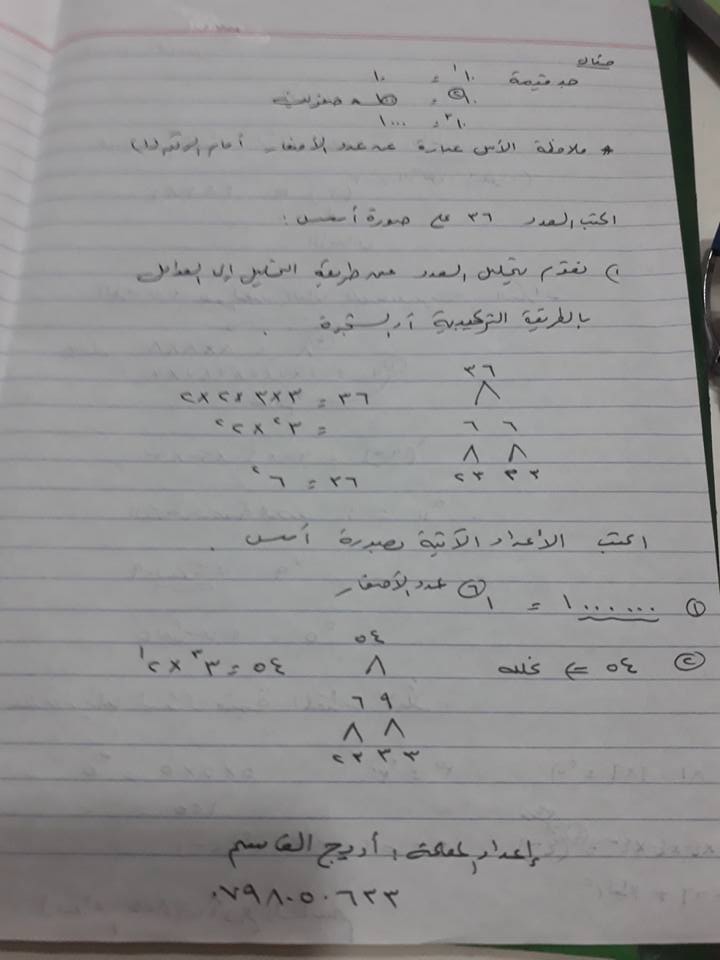 مثال
جد قيمة ١٠^١ = ١٠
١٠^٢ = ١٠٠ صفرين
١٠^٣ = ١٠٠٠
* ملاحظة الأس عبارة عن عدد الأصفار أمام الرقم (١)
اكتب العدد ٣٦ على صورة أسس :
١) نقوم بتحليل العدد عن طريقة التحليل إلى العوامل
بالطريقة التركيبية أو الشجرة .
٣٦
٣٦ = ٣×٣×٢×٢
٦ ٦
= ٣^٢ × ٢^٢
٢ ٣ ٣ ٢
٣٦ = ٦^٢
اكتب الأعداد الآتية بصورة أسس .
عدد الأصفار
① ١٠٠٠٠٠٠ = ١٠^٦
٥٤
② ٥٤ => نحلله ٥٤ = ٣^٣ × ٢^١
٦ ٩
٢ ٣ ٣ ٣
إعداد المعلمة : أريج القاسم
٠٧٩٨٠٥٠٦٢٣